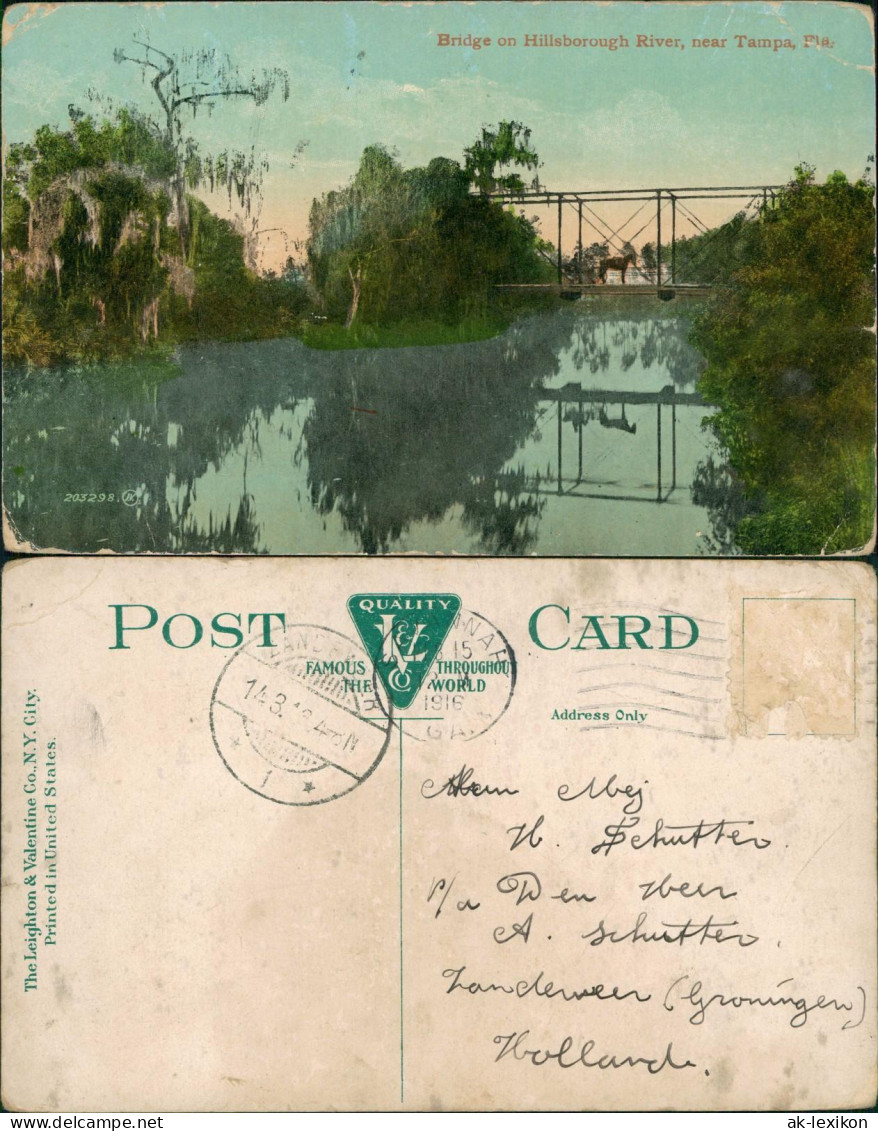 Bridge on Hillsborough River, near Tampa, Fla.
203298. JV
POST CARD
QUALITY
L&V
Co
FAMOUS THROUGHOUT
THE WORLD
SAVANNAH
15
1916
GA.
14.3.16 4-5N
1
Address Only
The Leighton & Valentine Co., N.Y. City.
Printed in United States.
Mej
H. Schutter
p/a Den Heer
A. Schutter.
Zandeweer (Groningen)
Holland.
ak-lexikon